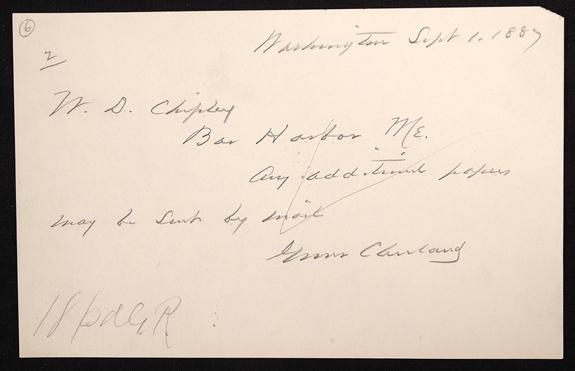 6
2
Washington Sept 1. 1887
W. D. Chipley
Bar Harbor Me.
Any additional papers
may be sent by mail
Grover Cleveland
18 pd GR